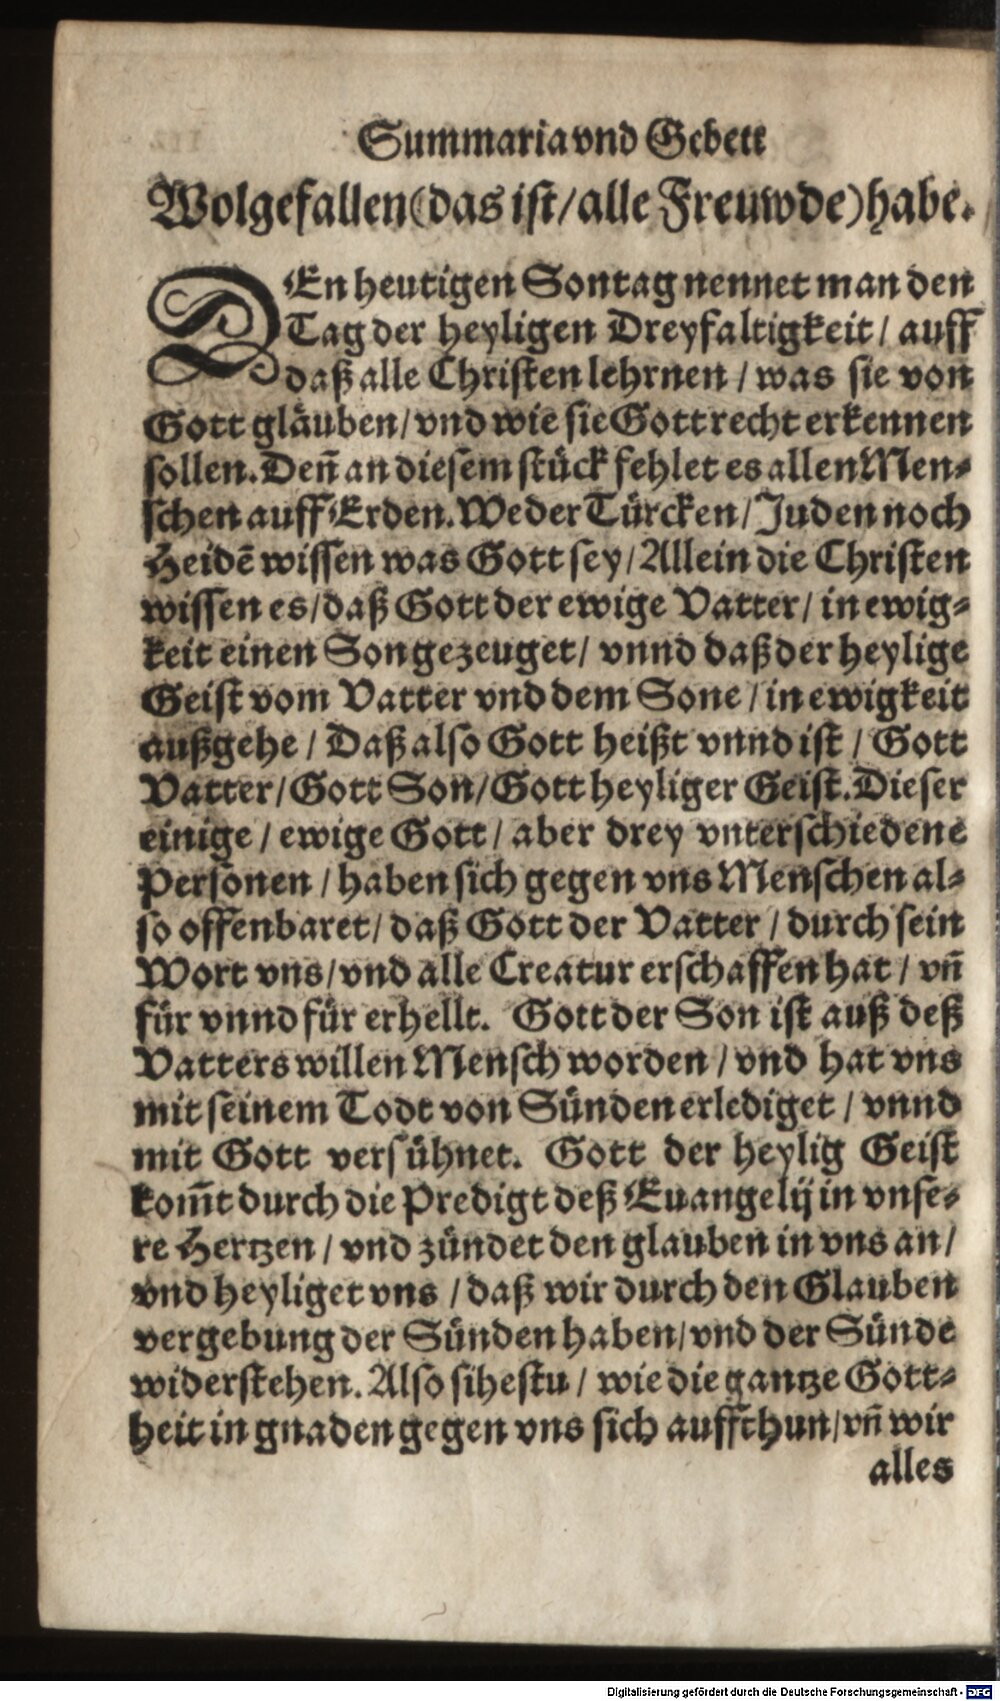 Summaria vnd Gebett
Wolgefallen (das ist / alle Freuwde) habe.
DEn heutigen Sontag nennet man den
Tag der heyligen Dreyfaltigkeit / auff
daß alle Christen lehrnen / was sie von
Gott gläuben / vnd wie sie Gott recht erkennen
sollen. Deñ an diesem stück fehlet es allen Men-
schen auff Erden. Weder Türcken / Juden noch
Heidẽ wissen was Gott sey / Allein die Christen
wissen es / daß Gott der ewige Vatter / in ewig-
keit einen Son gezeuget / vnnd daß der heylige
Geist vom Vatter vnd dem Sone / in ewigkeit
außgehe / Daß also Gott heißt vnnd ist / Gott
Vatter / Gott Son / Gott heyliger Geist. Dieser
einige / ewige Gott / aber drey vnterschiedene
Personen / haben sich gegen vns Menschen al-
so offenbaret / daß Gott der Vatter / durch sein
Wort vns / vnd alle Creatur erschaffen hat / vñ
für vnnd für erhellt. Gott der Son ist auß deß
Vatters willen Mensch worden / vnd hat vns
mit seinem Todt von Sünden erlediget / vnnd
mit Gott versühnet. Gott der heylig Geist
kom̃t durch die Predigt deß Euangelij in vnse-
re Hertzen / vnd zündet den glauben in vns an /
vnd heyliget vns / daß wir durch den Glauben
vergebung der Sünden haben / vnd der Sünde
widerstehen. Also sihestu / wie die gantze Gott-
heit in gnaden gegen vns sich auffthun / vñ wir
alles
Digitalisierung gefördert durch die Deutsche Forschungsgemeinschaft - DFG